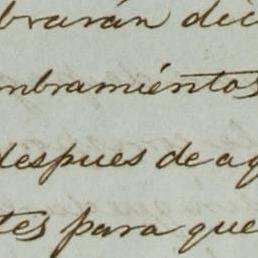 brarán dic
mbramientos
despues de aq
tes para que